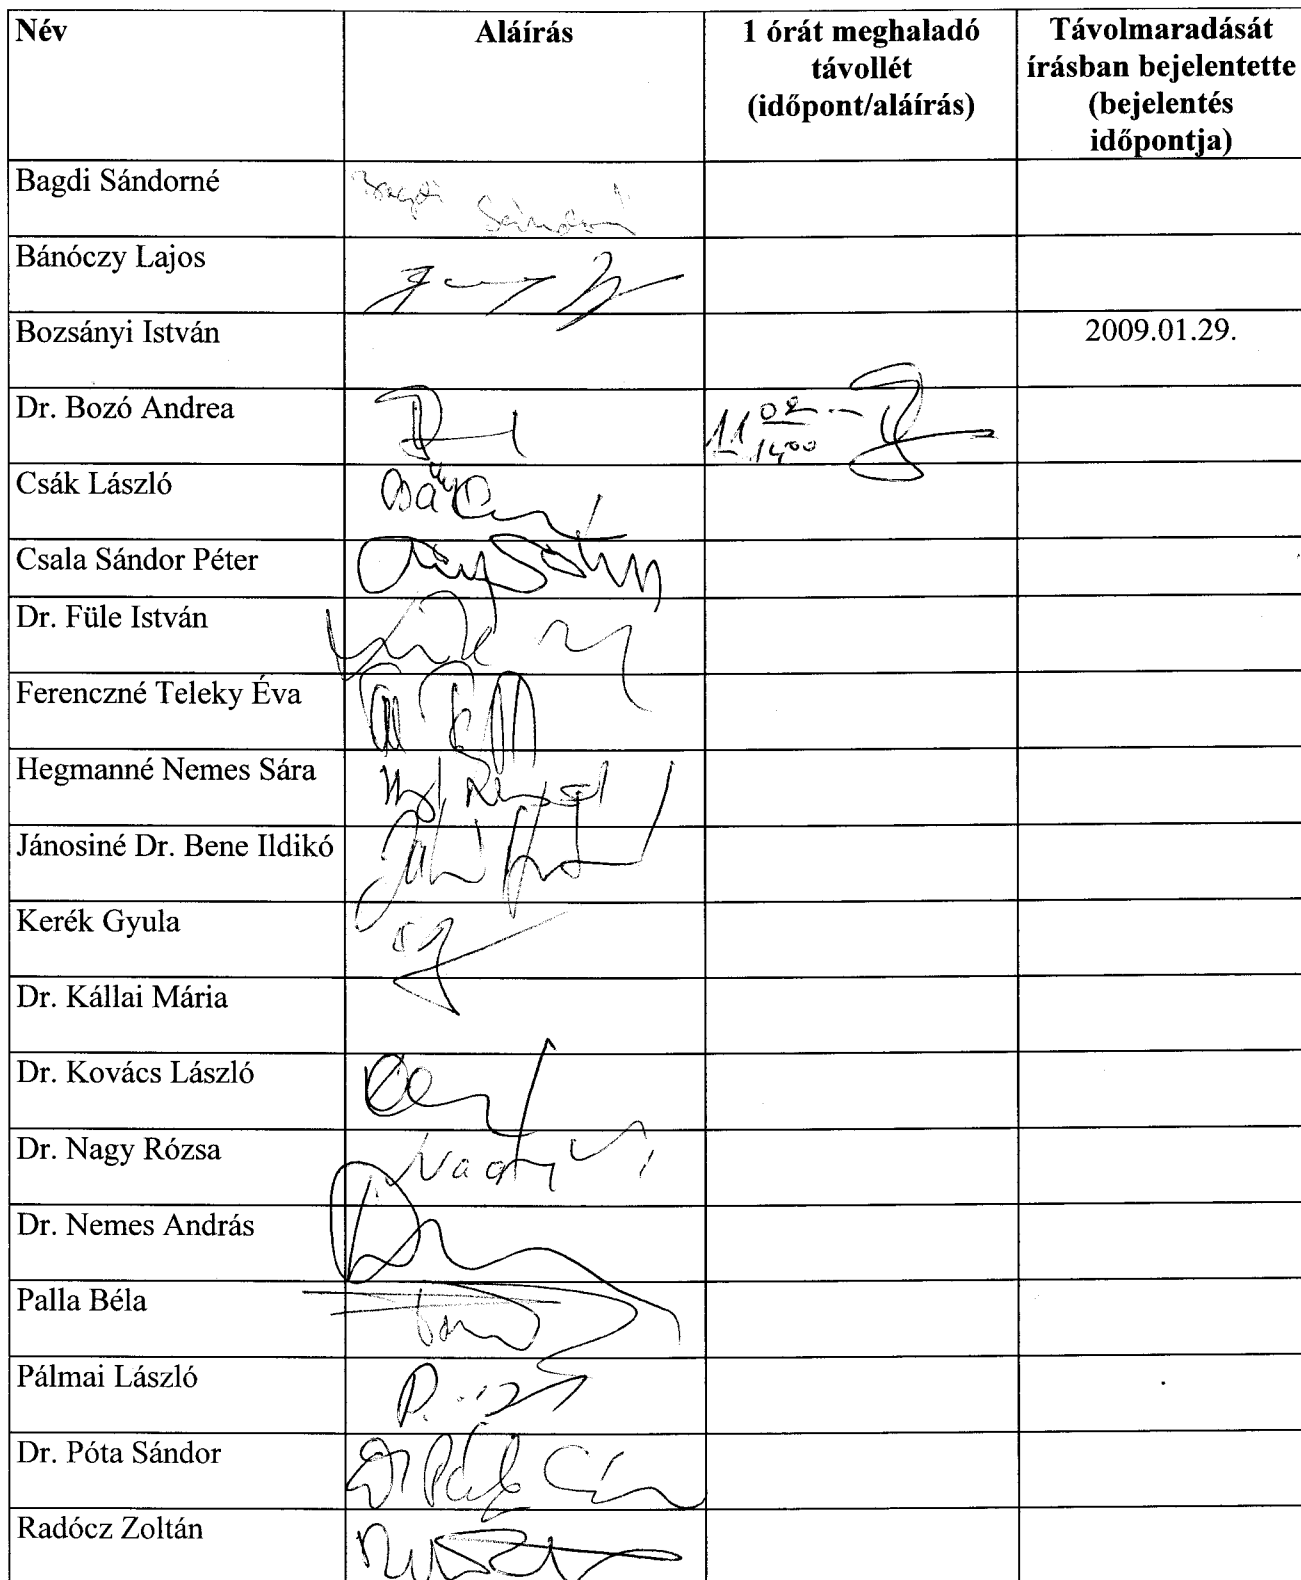 Név Aláírás 1 órát meghaladó távollét (időpont/aláírás) Távolmaradását írásban bejelentette (bejelentés időpontja)
Bagdi Sándorné Bagdi Sándorné
Bánóczy Lajos
Bozsányi István 2009.01.29.
Dr. Bozó Andrea 11 02 14 00
Csák László
Csala Sándor Péter
Dr. Füle István
Ferenczné Teleky Éva
Hegmanné Nemes Sára
Jánosiné Dr. Bene Ildikó
Kerék Gyula
Dr. Kállai Mária
Dr. Kovács László
Dr. Nagy Rózsa Nagy
Dr. Nemes András
Palla Béla
Pálmai László
Dr. Póta Sándor
Radócz Zoltán